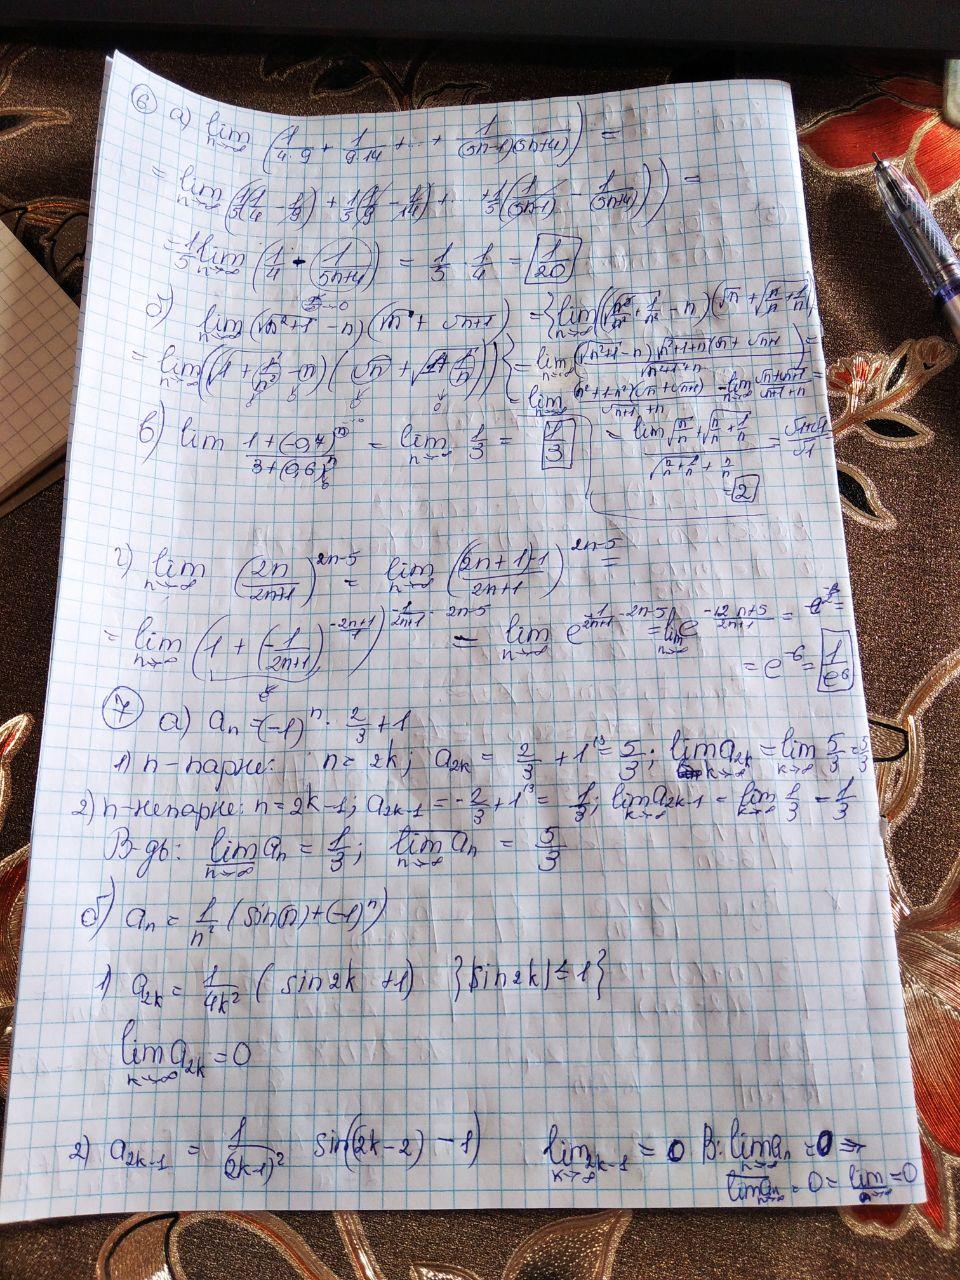 ⑥ а) lim n→∞ (1/(4·9) + 1/(9·14) + ... + 1/((5n-1)(5n+4))) =
= lim n→∞ (1/5(1/4 - 1/9) + 1/5(1/9 - 1/14) + ... + 1/5(1/(5n-1) - 1/(5n+4))) =
= 1/5 lim n→∞ (1/4 - 1/(5n+4)) = 1/5 · 1/4 = 1/20
б) lim n→∞ (√(n²+1) - n)(√n + √(n+1)) = lim n→∞ ((√(n²/n² + 1/n²) - n)(√n + √(n/n + 1/n)
= lim n→∞ ((√(1 + 1/n²) - n)(√n + √(1 + 1/n)))
= lim n→∞ (√(n²+1) - n)
= lim √(n/n) + √(n/n + 1/n)
= 2
в) lim (1+(-0,7)ⁿ)/(3+(0,6)ⁿ) = lim n→∞ 1/3 = 1/3
г) lim n→∞ (2n/(2n+1))^(2n-5) = lim n→∞ (((2n+1)-1)/(2n+1))^(2n-5) =
= lim n→∞ (1 + (-1/(2n+1))) = lim n→∞ e
= e⁻⁶ = 1/e⁶
⑦ а) aₙ = (-1)ⁿ · 2/3 + 1
1) n-парне: n = 2k; a₂ₖ = 2/3 + 1 = 5/3; lim k→∞ a₂ₖ = lim k→∞ 5/3 = 5/3
2) n-непарне: n = 2k-1; a₂ₖ₋₁ = -2/3 + 1 = 1/3; lim k→∞ a₂ₖ₋₁ = lim k→∞ 1/3 = 1/3
В-дь: lim n→∞ aₙ = 1/3; lim n→∞ aₙ = 5/3
б) aₙ = 1/n² (sin(n) + (-1)ⁿ)
1) a₂ₖ = 1/4k² (sin2k + 1) {|sin2k| ≤ 1}
lim k→∞ a₂ₖ = 0
2) a₂ₖ₋₁ = 1/(2k-1)² sin(2k-2) - 1) lim k→∞ 2k-1 = 0 В: lim n→∞ aₙ = 0 ⇒
lim n→∞ aₙ = 0 = lim n→∞ = 0